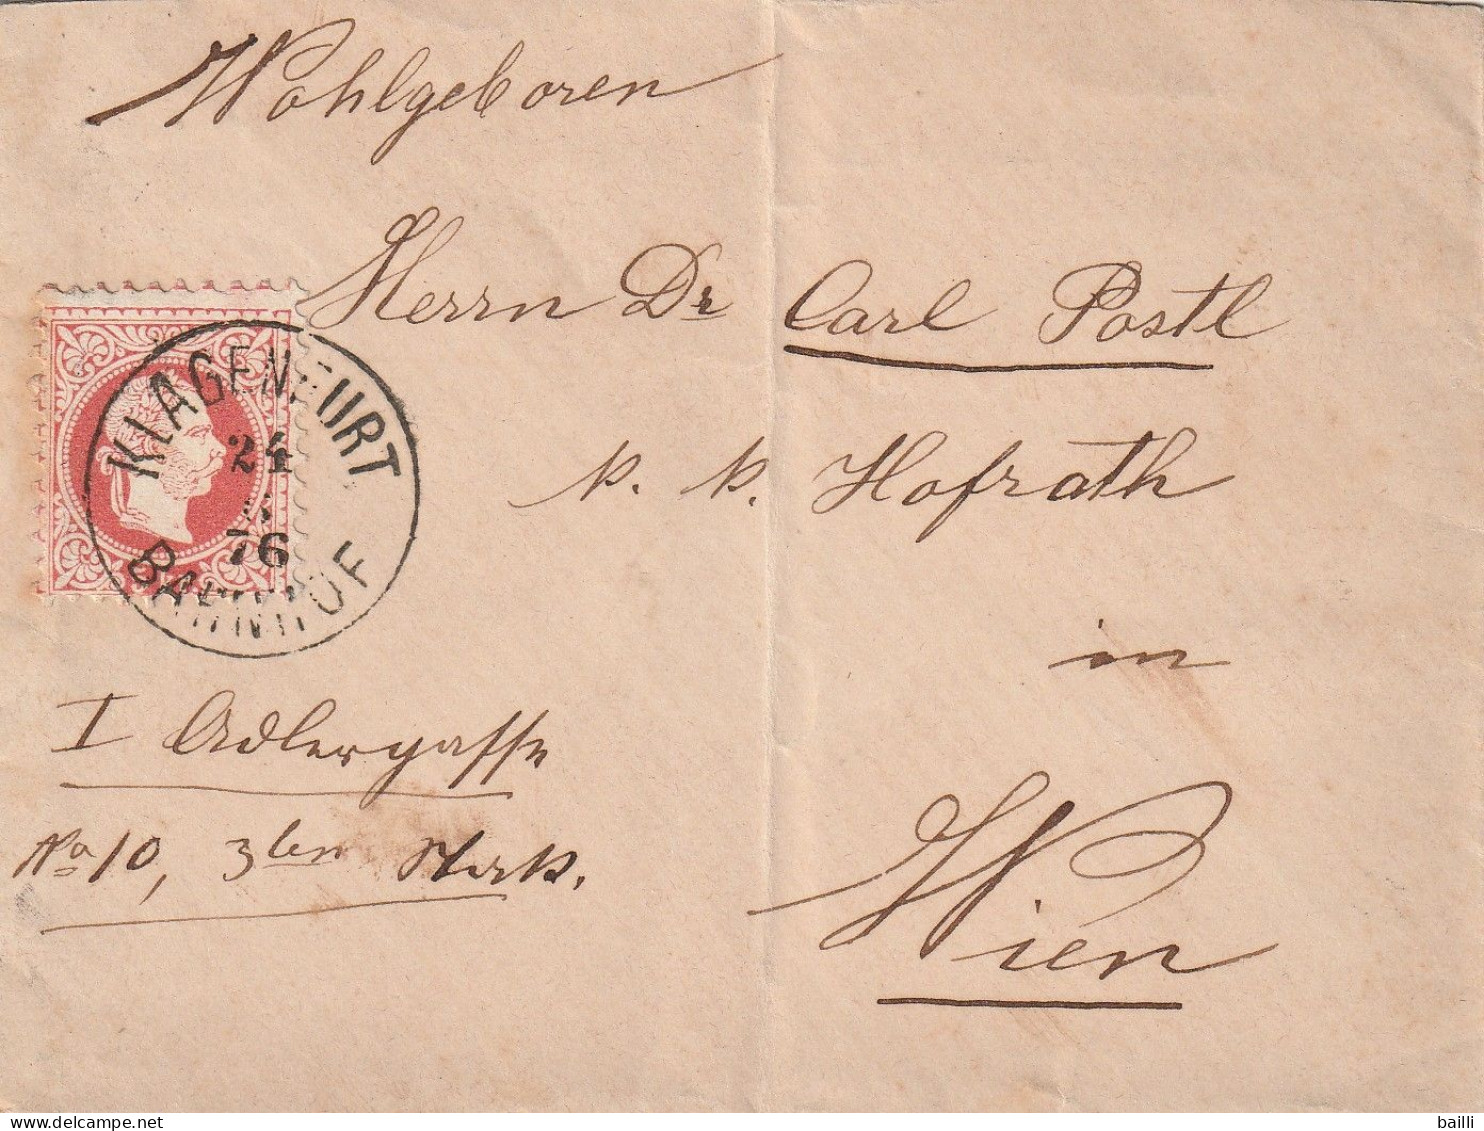 Wohlgeboren
Herrn Dr Carl Postl
k. k. Hofrath
in
Wien
KLAGENFURT
24
76
BAHNHOF
I Adlergasse
No 10, 3ten Stock.
bailli